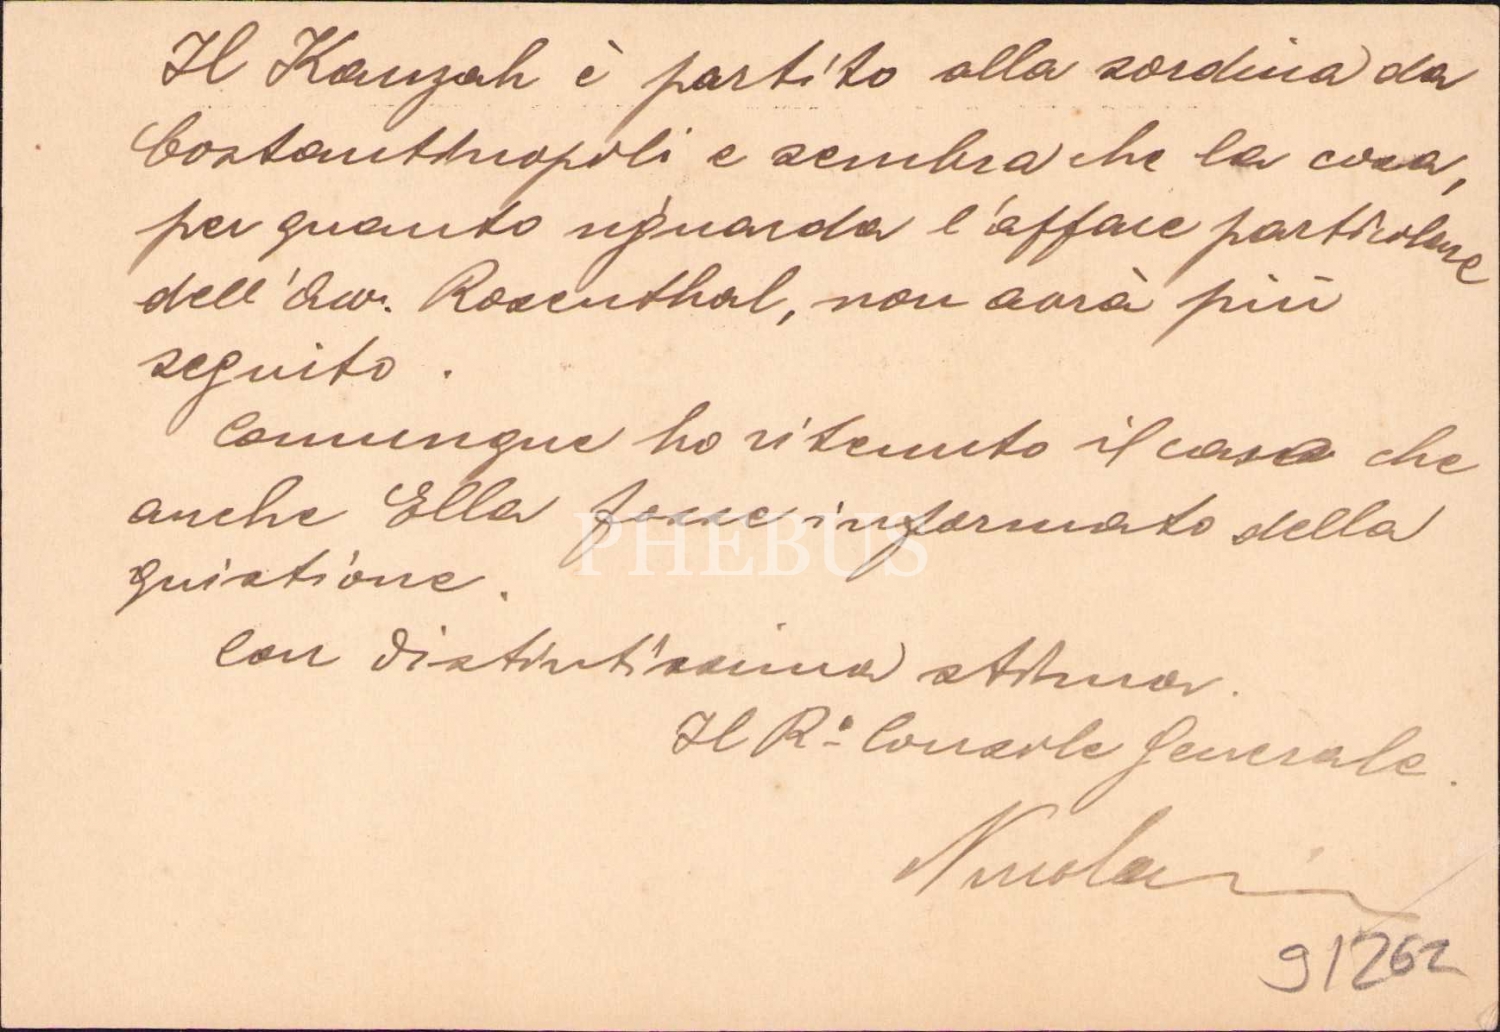 Il Kanzah è partito alla sordina da
Costantinopoli e sembra che la cosa,
per quanto riguarda l'affare particolare
dell'Avv. Rosenthal, non avrà più
seguito.
Comunque ho ritenuto il caso che
anche Ella fosse informato della
quistione.
Con distintissima stima.
Il R.º Console Generale.
91262
PHEBUS